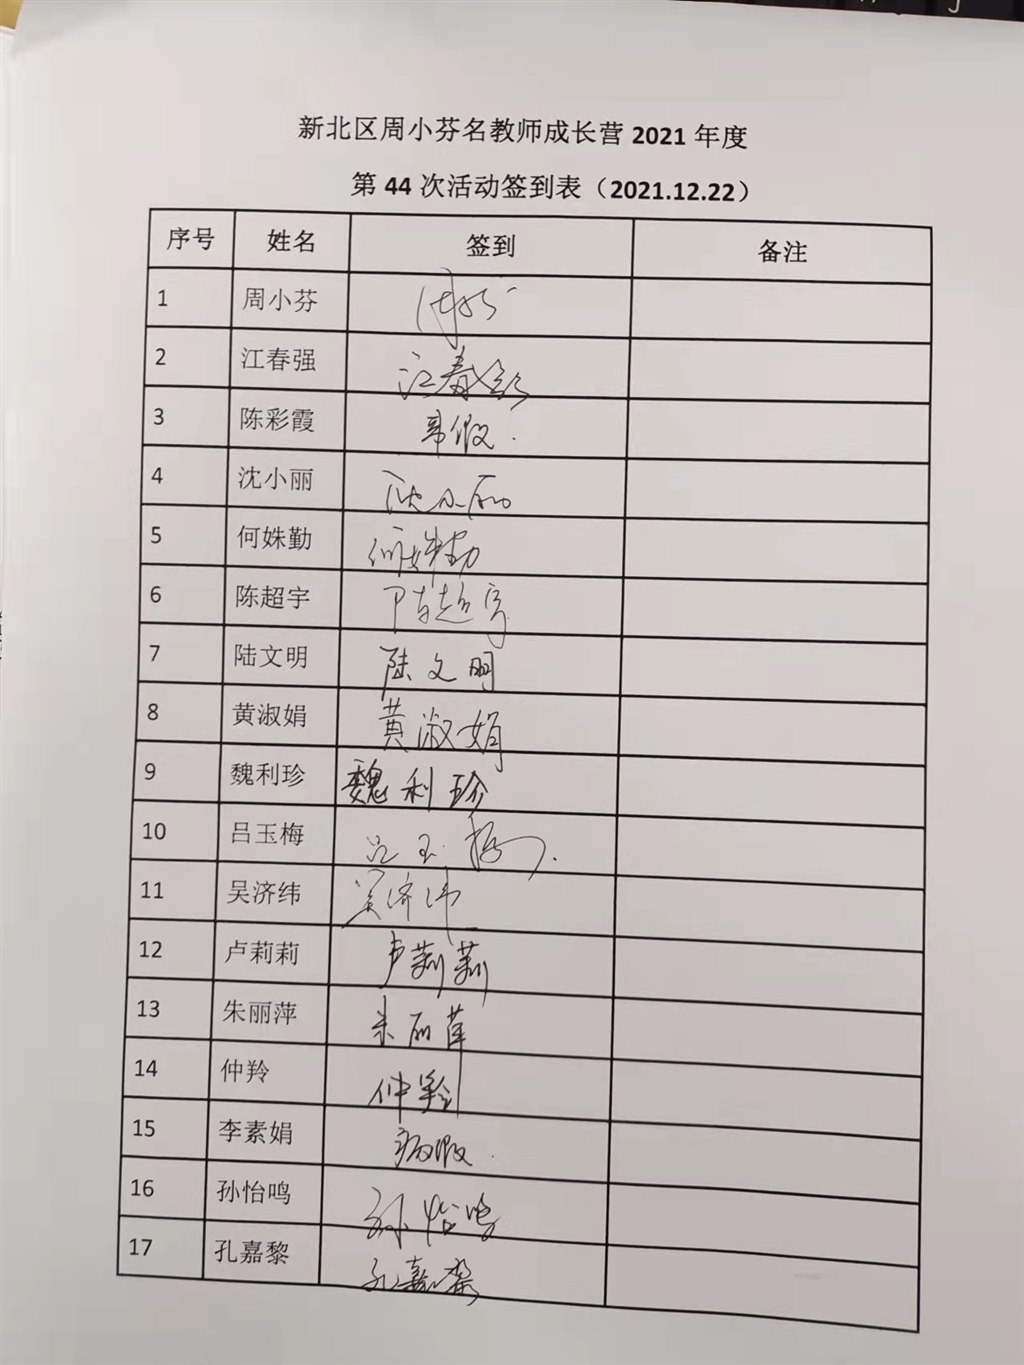 新北区周小芬名教师成长营 2021 年度
第 44 次活动签到表（2021.12.22）
序号 姓名 签到 备注
1 周小芬
2 江春强 江春强
3 陈彩霞 事假.
4 沈小丽 沈小丽
5 何姝勤 何姝勤
6 陈超宇 陈超宇
7 陆文明 陆文明
8 黄淑娟 黄淑娟
9 魏利珍 魏利珍
10 吕玉梅 吕玉梅
11 吴济纬 吴济纬
12 卢莉莉 卢莉莉
13 朱丽萍 朱丽萍
14 仲羚 仲羚
15 李素娟 病假.
16 孙怡鸣 孙怡鸣
17 孔嘉黎 孔嘉黎